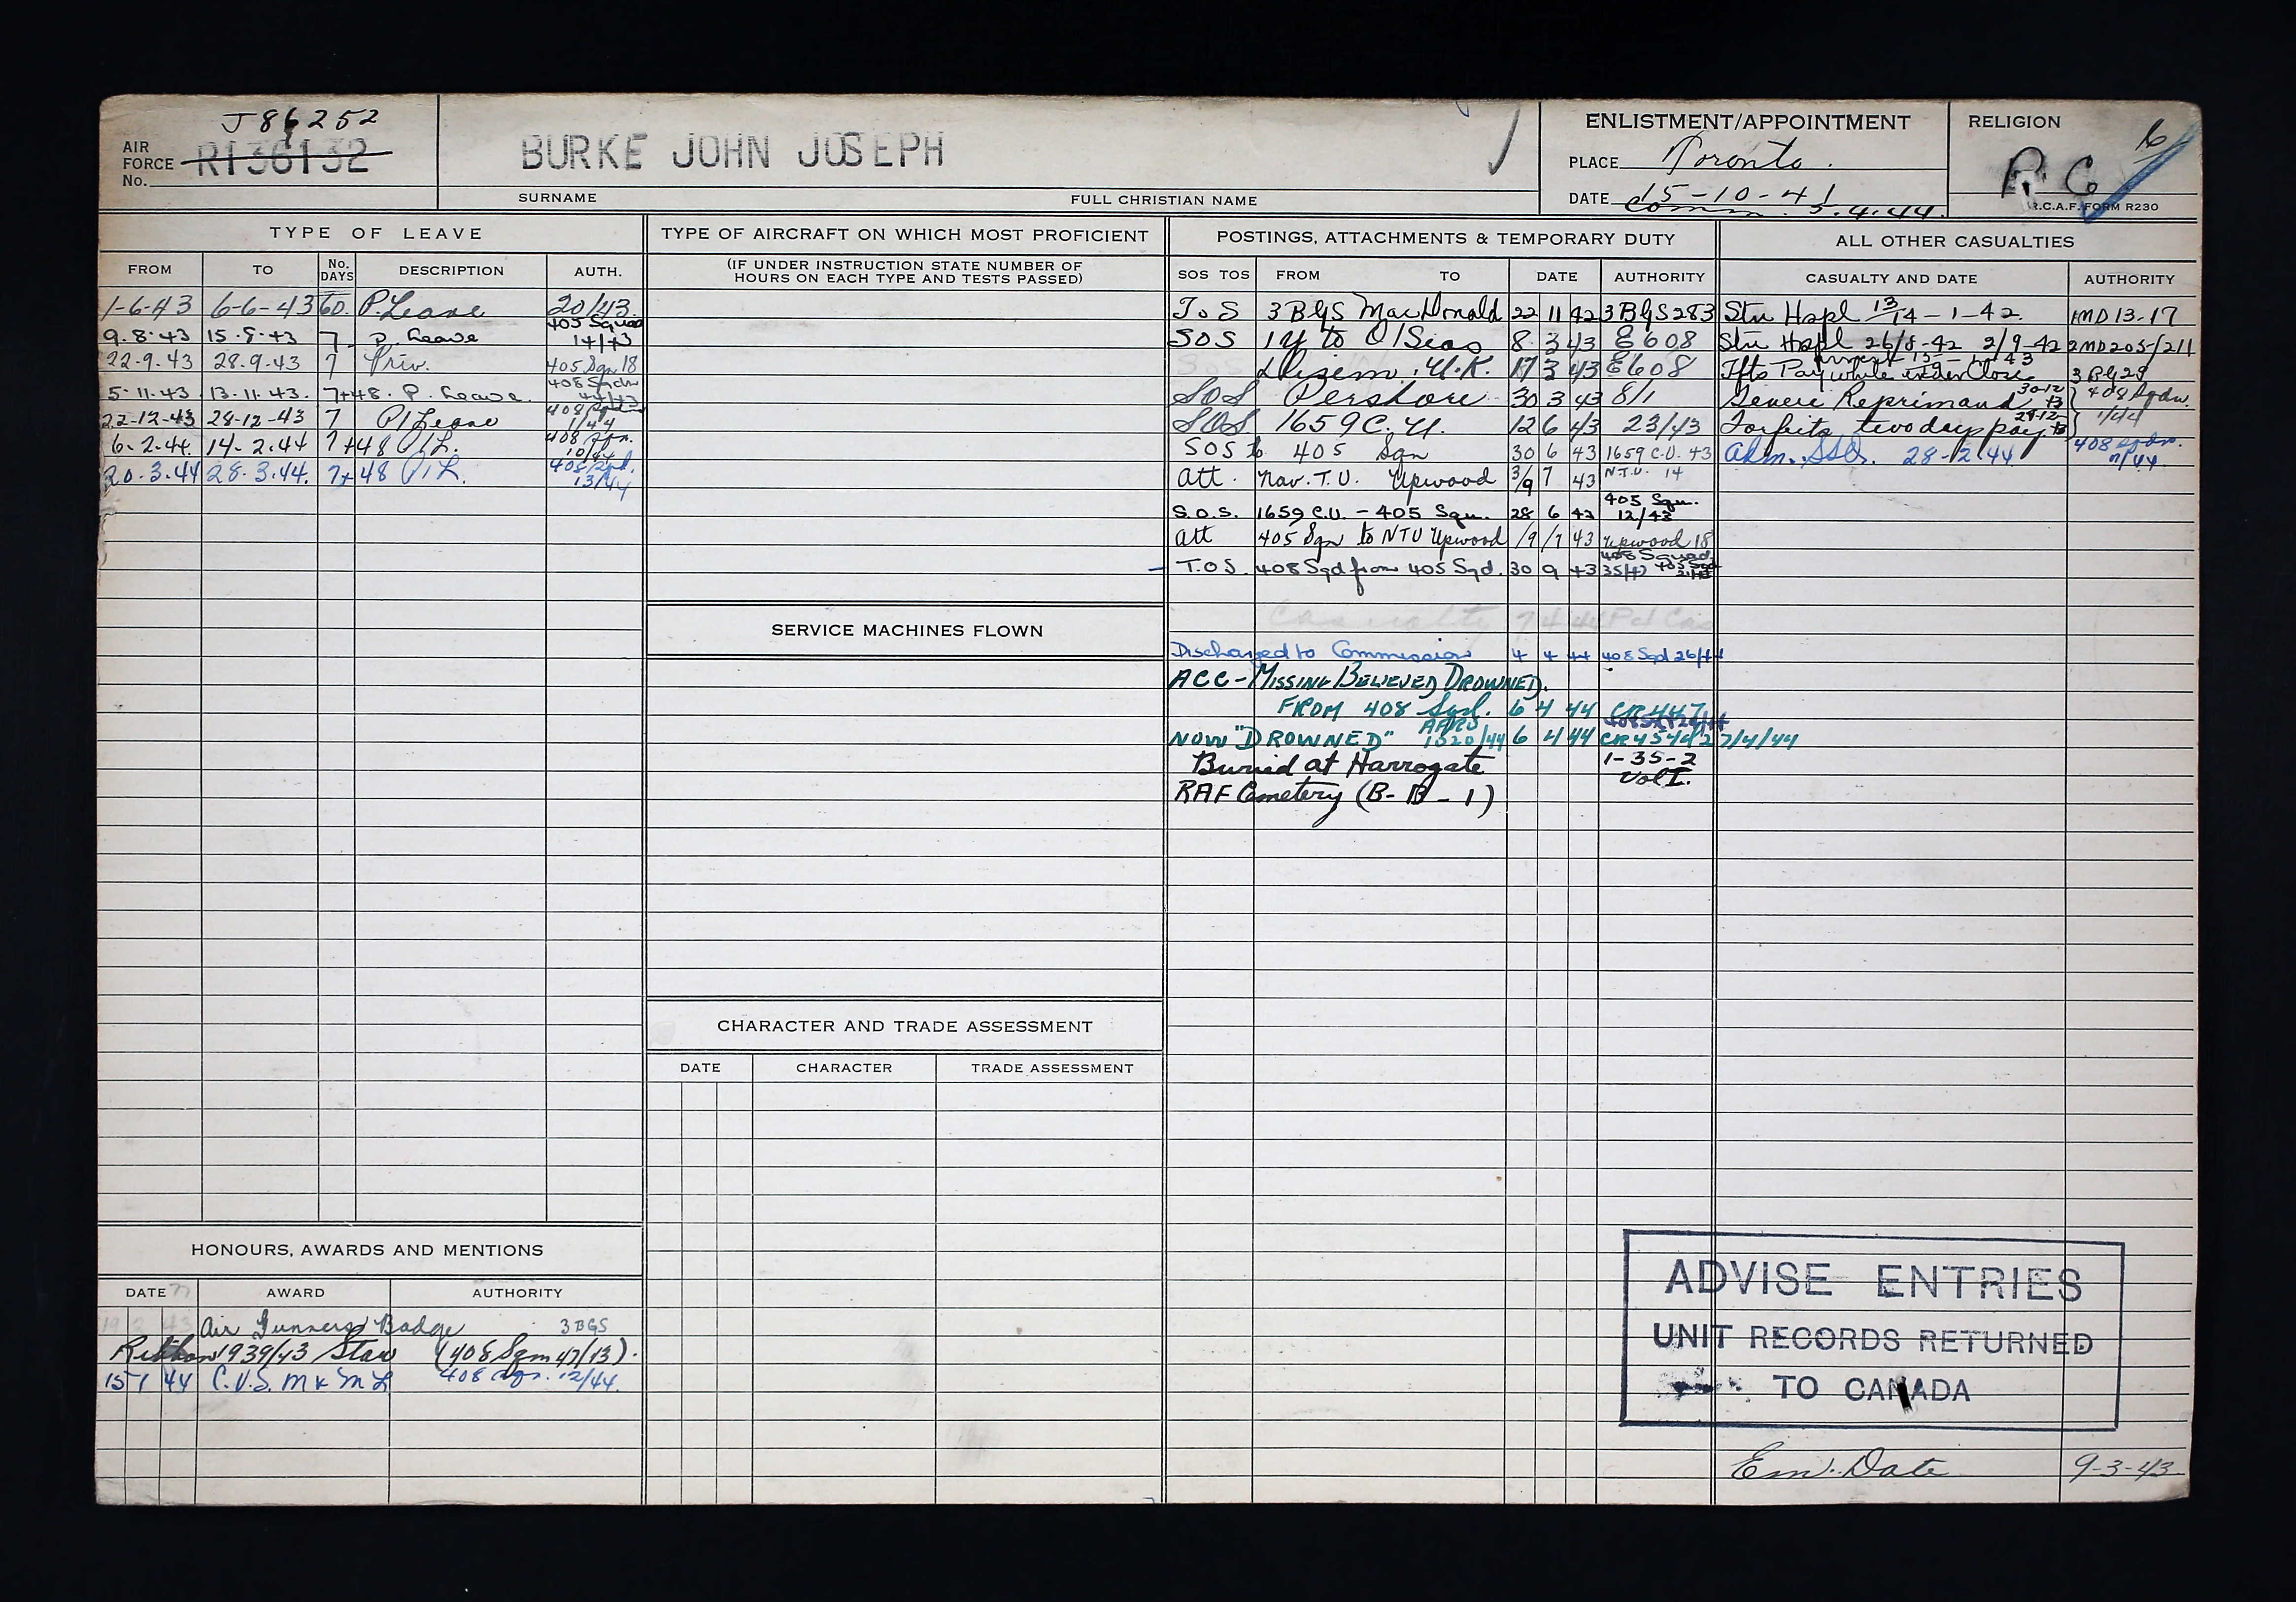 J86252
AIR FORCE No. R136132
BURKE JOHN JOSEPH
SURNAME FULL CHRISTIAN NAME
ENLISTMENT/APPOINTMENT
PLACE Toronto.
DATE 15-10-41
Comm. 5.4.44.
RELIGION
16
R C
R.C.A.F. FORM R230
TYPE OF LEAVE
FROM TO No. DAYS DESCRIPTION AUTH.
1-6-43 6-6-43 6D. P. Leave 20/43.
9.8.43 15.8.43 7 P. Leave 405 Squad 14/43
22-9.43 28.9.43 7 Priv. 405 Sqn 18
5-11.43 13.11.43. 7+48. P. Leave. 408 Sqdn 44/43
22-12-43 28-12-43 7 P/Leave 1/44
6.2.44. 14.2.44 7+48 P/L. 408 Sqn. 10/44
20.3.44 28.3.44. 7+48 P/L. 408 Sqd. 13/44
TYPE OF AIRCRAFT ON WHICH MOST PROFICIENT
(IF UNDER INSTRUCTION STATE NUMBER OF
HOURS ON EACH TYPE AND TESTS PASSED)
SERVICE MACHINES FLOWN
CHARACTER AND TRADE ASSESSMENT
DATE CHARACTER TRADE ASSESSMENT
POSTINGS, ATTACHMENTS & TEMPORARY DUTY
SOS TOS FROM TO DATE AUTHORITY
ToS 3 B&GS MacDonald 22 11 42 3B&GS283
SOS 1Y to O/Seas 8 3 43 E608
Disem. U.K. 17 3 43 E608
SOS Pershore 30 3 43 8/1
SOS 1659 C.U. 12 6 43 23/43
SOS to 405 Sqn 30 6 43 1659 C.U. 43
Att. Nav. T.U. Upwood 3/9 7 43 N.T.U. 14
S.O.S. 1659 C.U. - 405 Squ. 28 6 43 405 Squ. 12/43
Att 405 Sqn to NTU Upwood /9 /7 43 Upwood 18
T.O.S. 408 Sqd from 405 Sqd. 30 9 43 408 Squad. 35/43 405 Sqd
Casualty 7 4 44
Discharged to Commission 4 4 44 408 Sqd 26/44
ACC - MISSING BELIEVED DROWNED.
FROM 408 Sqd. 6 4 44 CR447
NOW "DROWNED" AFRO 1020/44 6 4 44 CR454d27/4/44
Buried at Harrogate 1-35-2
RAF Cemetery (B-B-1) Vol I.
ALL OTHER CASUALTIES
CASUALTY AND DATE AUTHORITY
Stn Hspl 13/14-1-42 1MD13-17
Stn Hspl 26/8-42 2/9-42 2MD205-/211
Ffts Pay while under Close arrest 3 B&G 29
Severe Reprimand 30-12 43 408 Sqdn.
Forfeits two days pay 29-12 43 1/44
Adm. SSQ. 28-2-44. 408 Sqdn. 11/44
HONOURS, AWARDS AND MENTIONS
DATE AWARD AUTHORITY
19 2 43 Air Gunners Badge 3BGS
Ribbon 1939/43 Star (408 Sqn 47/13).
15 1 44 C.V.S.M & M L 408 Sqn. 12/44.
ADVISE ENTRIES
UNIT RECORDS RETURNED
TO CANADA
Em. Date 9-3-43